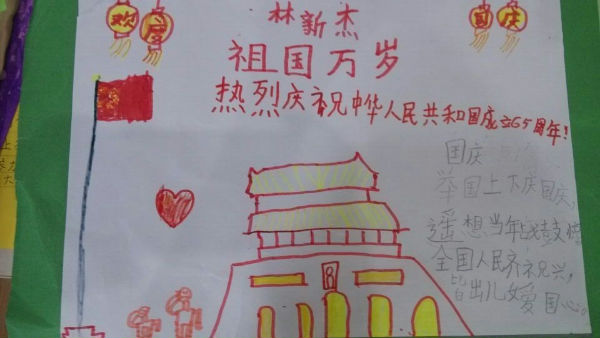 欢度 国庆
林新杰
祖国万岁
热烈庆祝中华人民共和国成立65周年!
国庆
举国上下庆国庆,
遥想当年战鼓
全国人民齐祝兴,
皆出儿女爱国心。